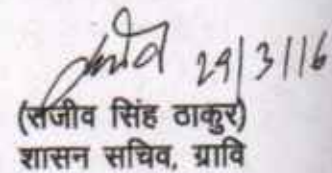 29/3/16
(राजीव सिंह ठाकुर)
शासन सचिव, ग्रावि